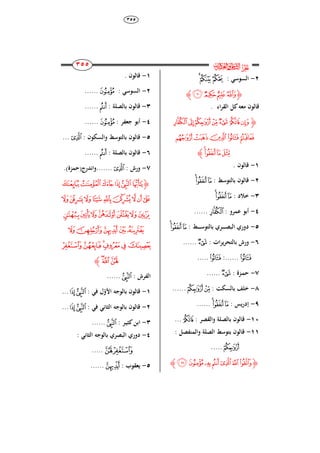 ٣٥٥
٣٥٥
٢- السوسي : يَحْكُم بَّيْنَكُمْ
﴿ وَاللَّهُ عَلِيمٌ حَكِيمٌ ۝١٠ ﴾
قالون معه كل القراء .
﴿ وَإِن فَاتَكُمْ شَيْءٌ مِّنْ أَزْوَاجِكُمْ إِلَى الْكُفَّارِ
فَعَاقَبْتُمْ فَآتُوا الَّذِينَ ذَهَبَتْ أَزْوَاجُهُم
مِّثْلَ مَا أَنفَقُوا ﴾
١- قالون .
٢- قالون بالتوسط : مَا أَنفَقُوا
٣- خلاد : مَا أَنفَقُوا
٤- أبو عمرو : الْكُفَّارِ ......
٥- دوري البصري بالتوسط : مَا أَنفَقُوا
٦- ورش بالتحريرات : شَيْءٌ ......
فَآتُوا ......: فَآتُوا .....
٧- حمزة : شَيْءٌ ......
٨- خلف بالسكت : مِّنْ أَزْوَاجِكُمْ ......
٩- إدريس : مَا أَنفَقُوا ......
١٠- قالون بالصلة والقصر : فَاتَكُمْ ...
١١- قالون بتوسط الصلة والمنفصل :
أَزْوَاجِكُمْ .....
﴿ وَاتَّقُوا اللَّهَ الَّذِي أَنتُم بِهِ مُؤْمِنُونَ ۝١١ ﴾
١- قالون .
٢- السوسي : مُؤْمِنُونَ ......
٣- قالون بالصلة : أَنتُم ......
٤- أبو جعفر : مُؤْمِنُونَ ......
٥- قالون بالتوسط والسكون : الَّذِي ...
٦- قالون بالصلة : أَنتُم ......
٧- ورش : الَّذِي .......واندرج(حمزة).
﴿ يَا أَيُّهَا النَّبِيُّ إِذَا جَاءَكَ الْمُؤْمِنَاتُ يُبَايِعْنَكَ
عَلَى أَن لَّا يُشْرِكْنَ بِاللَّهِ شَيْئًا وَلَا يَسْرِقْنَ وَلَا
يَزْنِينَ وَلَا يَقْتُلْنَ أَوْلَادَهُنَّ وَلَا يَأْتِينَ بِبُهْتَانٍ
يَفْتَرِينَهُ بَيْنَ أَيْدِيهِنَّ وَأَرْجُلِهِنَّ وَلَا
يَعْصِينَكَ فِي مَعْرُوفٍ فَبَايِعْهُنَّ وَاسْتَغْفِرْ
لَهُنَّ اللَّهَ ﴾
الفرش : النَّبِيُّ ......
١- قالون بالوجه الأول في : النَّبِيُّ إِذَا ...
٢- قالون بالوجه الثاني في : النَّبِيُّ إِذَا ...
٣- ابن كثير : النَّبِيُّ ......
٤- دوري البصري بالوجه الثاني :
وَاسْتَغْفِرْ لَهُنَّ .....
٥- يعقوب : أَيْدِيهِنَّ ......